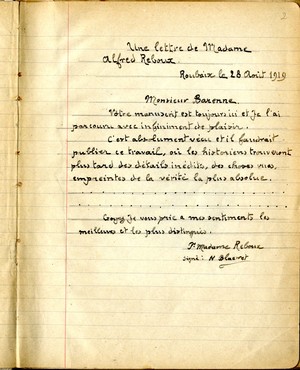 Une lettre de Madame
Alfred Reboux
Roubaix le 28 Août 1919
Monsieur Barenne
Votre manuscrit est toujours ici et je l'ai
parcouru avec infiniment de plaisir.
C'est absolument vécu et il faudrait
publier ce travail, où les historiens trouveront
plus tard des détails inédits, des choses vues,
empreintes de la vérité la plus absolue.
Croyez je vous prie a mes sentiments les
meilleurs et les plus distingués.
Pr Madame Reboux
signé: H.